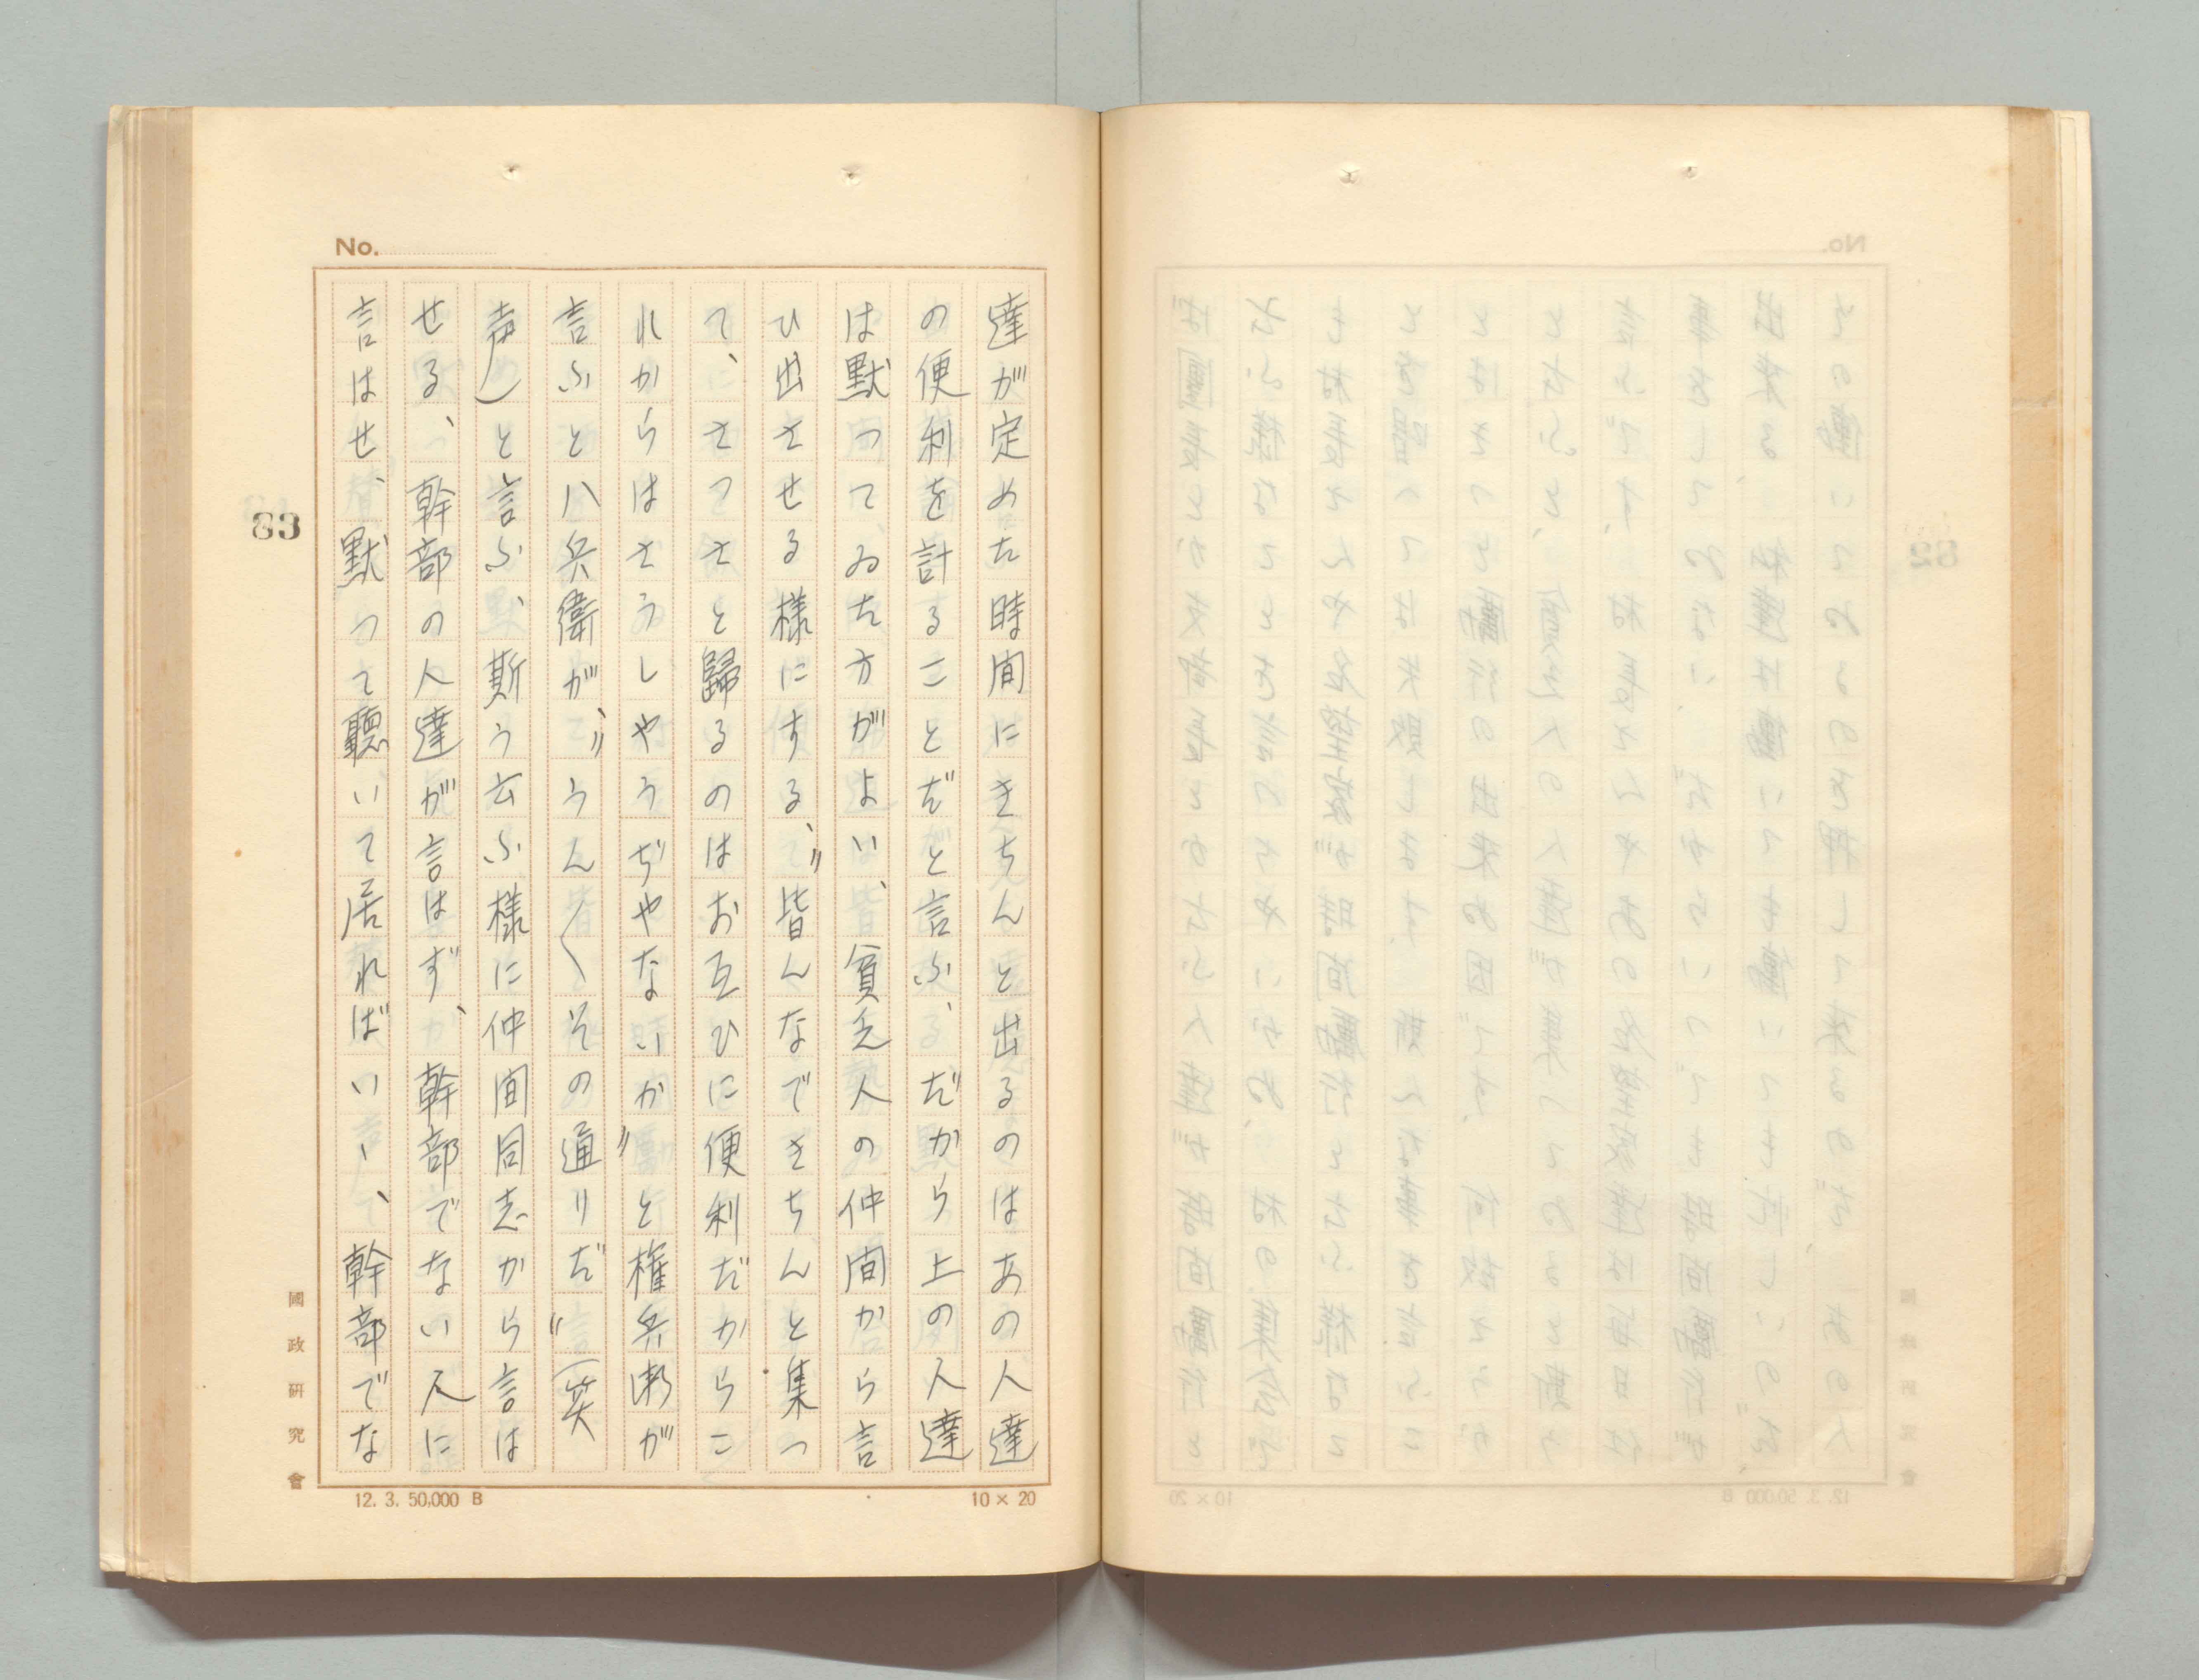 No.
達が定めた時間にきちんと出るのはあの人達
の便利を計ることだと言ふ、だから上の人達
は默つてゐた方がよい、貧乏人の仲間から言
ひ出させる様にする、〃皆んなできちんと集つ
て、さつさと歸るのはお互ひに便利だからこ
れからはさうしやうぢやないか〃と権兵衛が
言ふと八兵衛が、〃うん〳〵その通りだ〃(笑
声)と言ふ、斯う云ふ様に仲間同志から言は
せる、幹部の人達が言はず、幹部でない人に
言はせ、默つて聽いて居ればいゝ、幹部でな
83
國政研究會
12. 3. 50,000 B
10 × 20